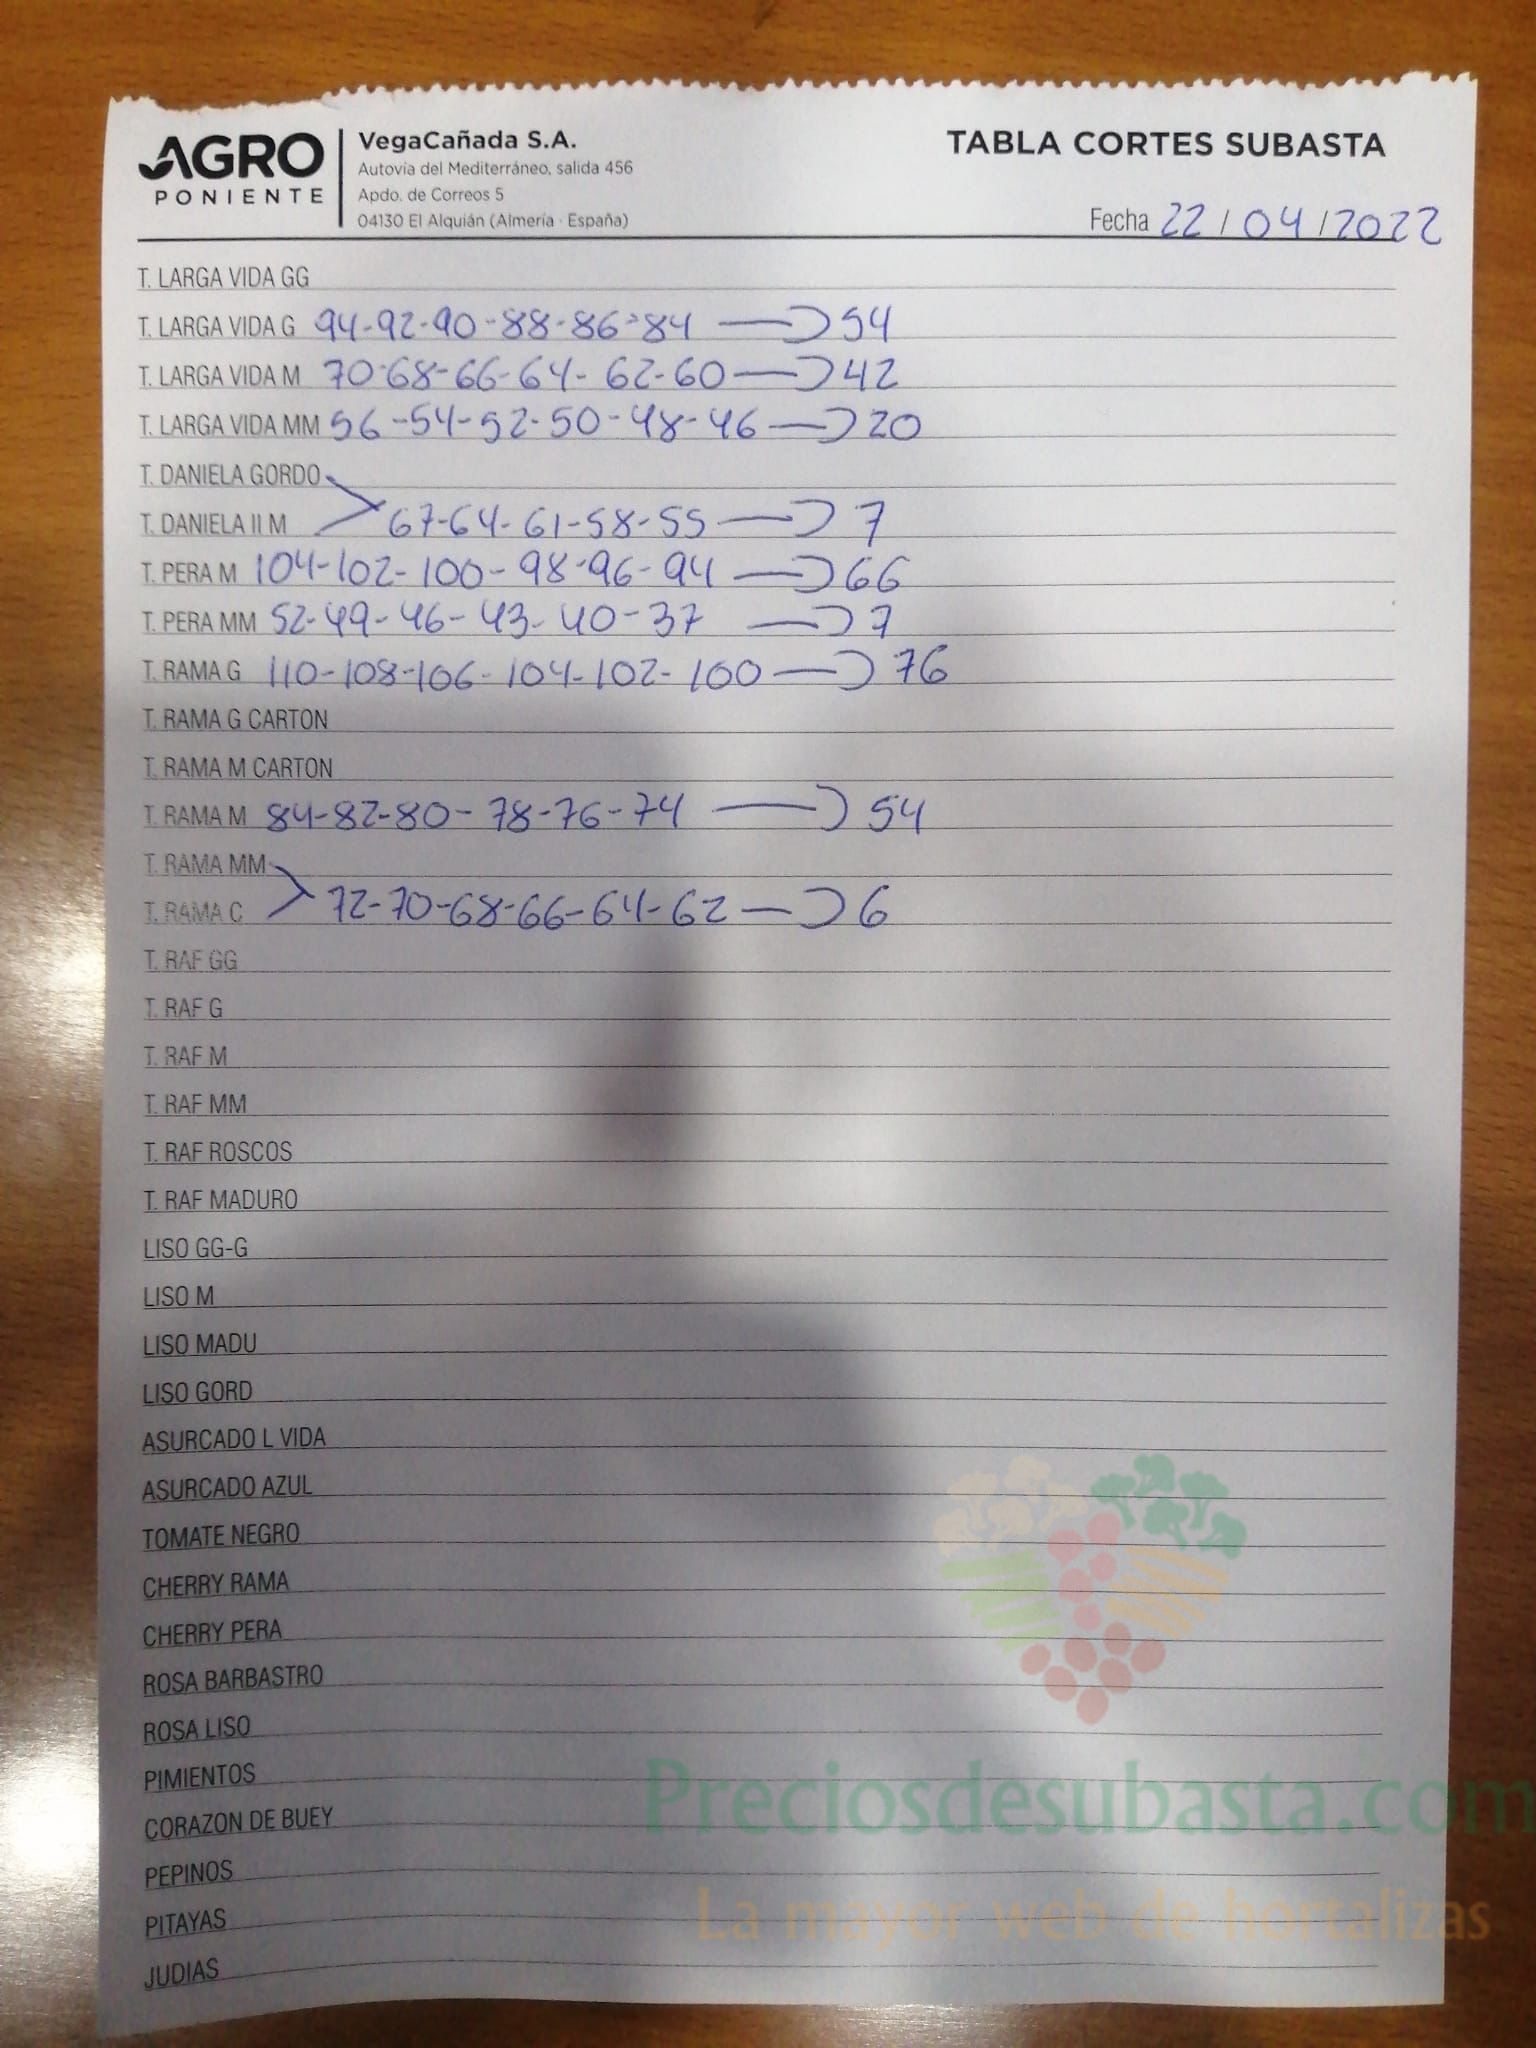 AGRO PONIENTE
VegaCañada S.A.
Autovía del Mediterráneo, salida 456
Apdo. de Correos 5
04130 El Alquián (Almería · España)
TABLA CORTES SUBASTA
Fecha 22 / 04 / 2022
T. LARGA VIDA GG
T. LARGA VIDA G 94-92-90-88-86-84 54
T. LARGA VIDA M 70-68-66-64-62-60 42
T. LARGA VIDA MM 56-54-52-50-48-46 20
T. DANIELA GORDO
T. DANIELA II M 67-64-61-58-55 7
T. PERA M 104-102-100-98-96-94 66
T. PERA MM 52-49-46-43-40-37 7
T. RAMA G 110-108-106-104-102-100 76
T. RAMA G CARTON
T. RAMA M CARTON
T. RAMA M 84-82-80-78-76-74 54
T. RAMA MM
T. RAMA C 72-70-68-66-64-62 6
T. RAF GG
T. RAF G
T. RAF M
T. RAF MM
T. RAF ROSCOS
T. RAF MADURO
LISO GG-G
LISO M
LISO MADU
LISO GORD
ASURCADO L VIDA
ASURCADO AZUL
TOMATE NEGRO
CHERRY RAMA
CHERRY PERA
ROSA BARBASTRO
ROSA LISO
PIMIENTOS
CORAZON DE BUEY
PEPINOS
PITAYAS
JUDIAS
Preciosdesubasta.com
La mayor web de hortalizas